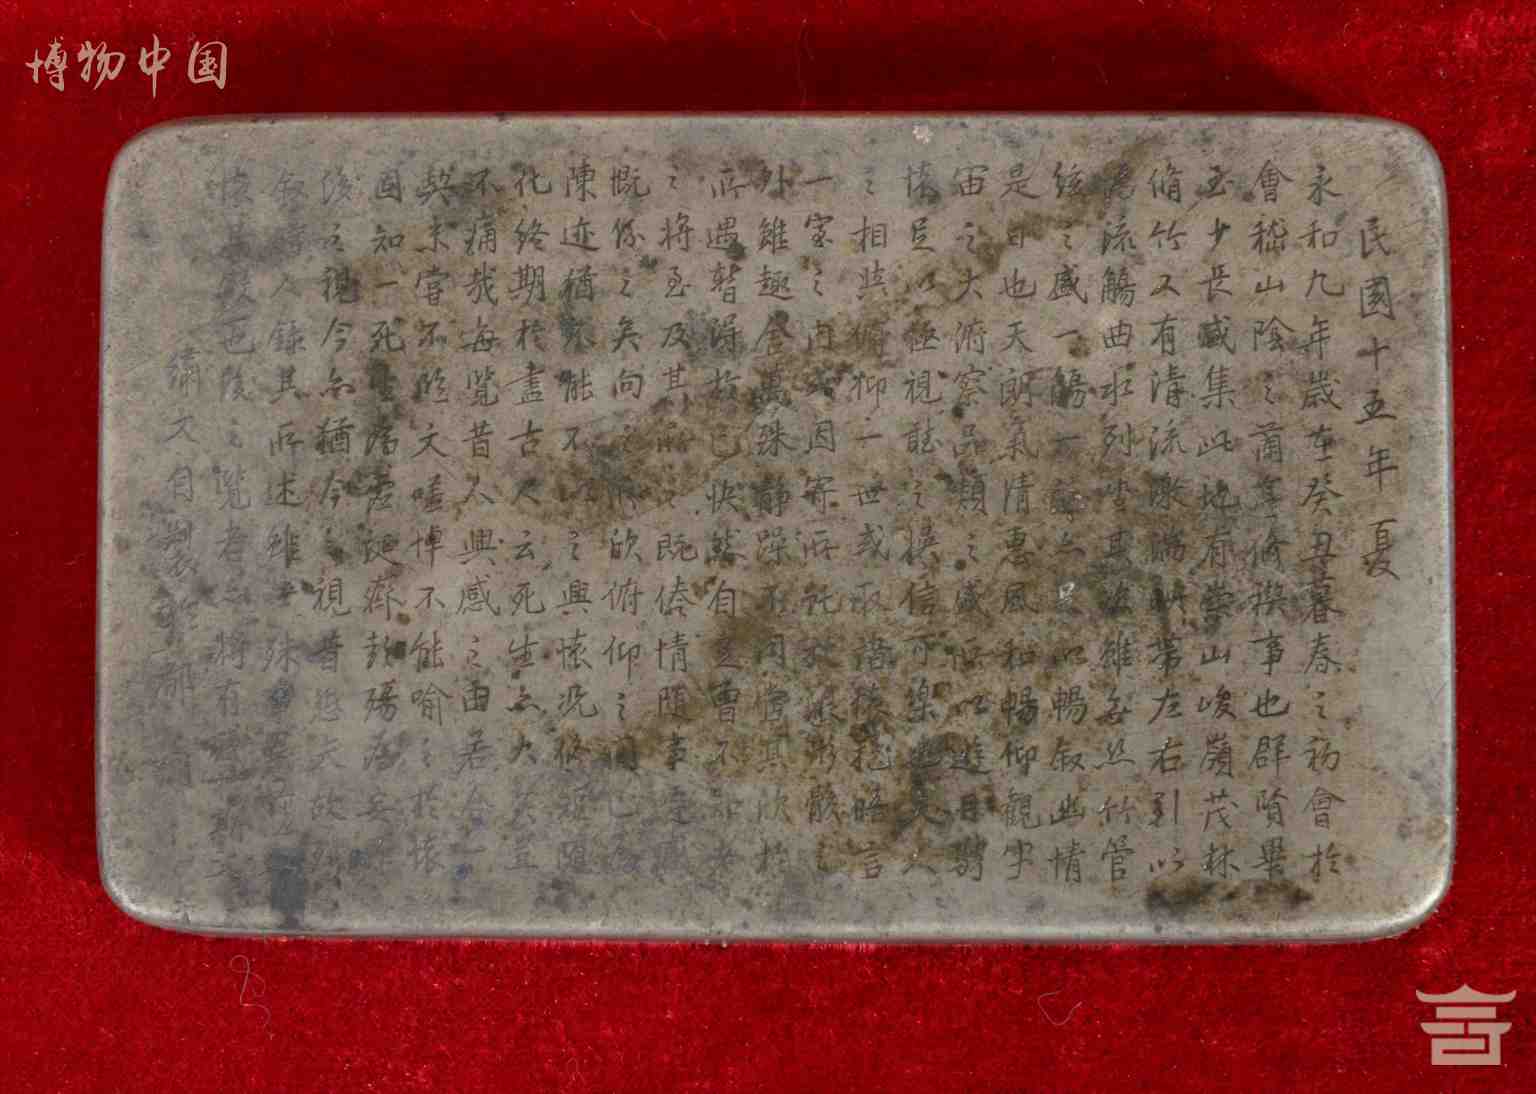 民國十五年夏
永和九年歲在癸丑暮春之初會於
會嵇山陰之蘭亭修禊事也群賢畢
至少長咸集此地有崇山峻嶺茂林
脩竹又有清流激湍映帶左右引以
為流觴曲水列坐其次雖無絲竹管
絃之盛一觴一詠亦足以暢敘幽情
是日也天朗氣清惠風和暢仰觀宇
宙之大俯察品類之盛所以遊目騁
懷足以極視聽之娛信可樂也夫人
之相與俯仰一世或取諸懷抱晤言
一室之內或因寄所託放浪形骸之
外雖趣舍萬殊靜躁不同當其欣於
所遇暫得於己快然自足曾不知老
之將至及其所之既倦情隨事遷感
慨係之矣向之所欣俯仰之間已為
陳迹猶不能不以之興懷況修短隨
化終期於盡古人云死生亦大矣豈
不痛哉每覽昔人興感之由若合一
契未嘗不臨文嗟悼不能喻之於懷
固知一死生為虛誕齊彭殤為妄作
後之視今亦猶今之視昔悲夫故列
敘時人錄其所述雖世殊事異所以
懷其致一也後之覽者亦將有感斯文
繡文自製於都門
博物中国